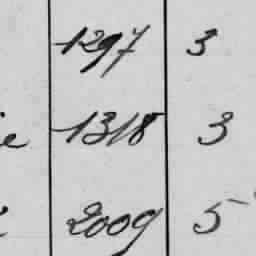 1297 3
1318 3
2009 5